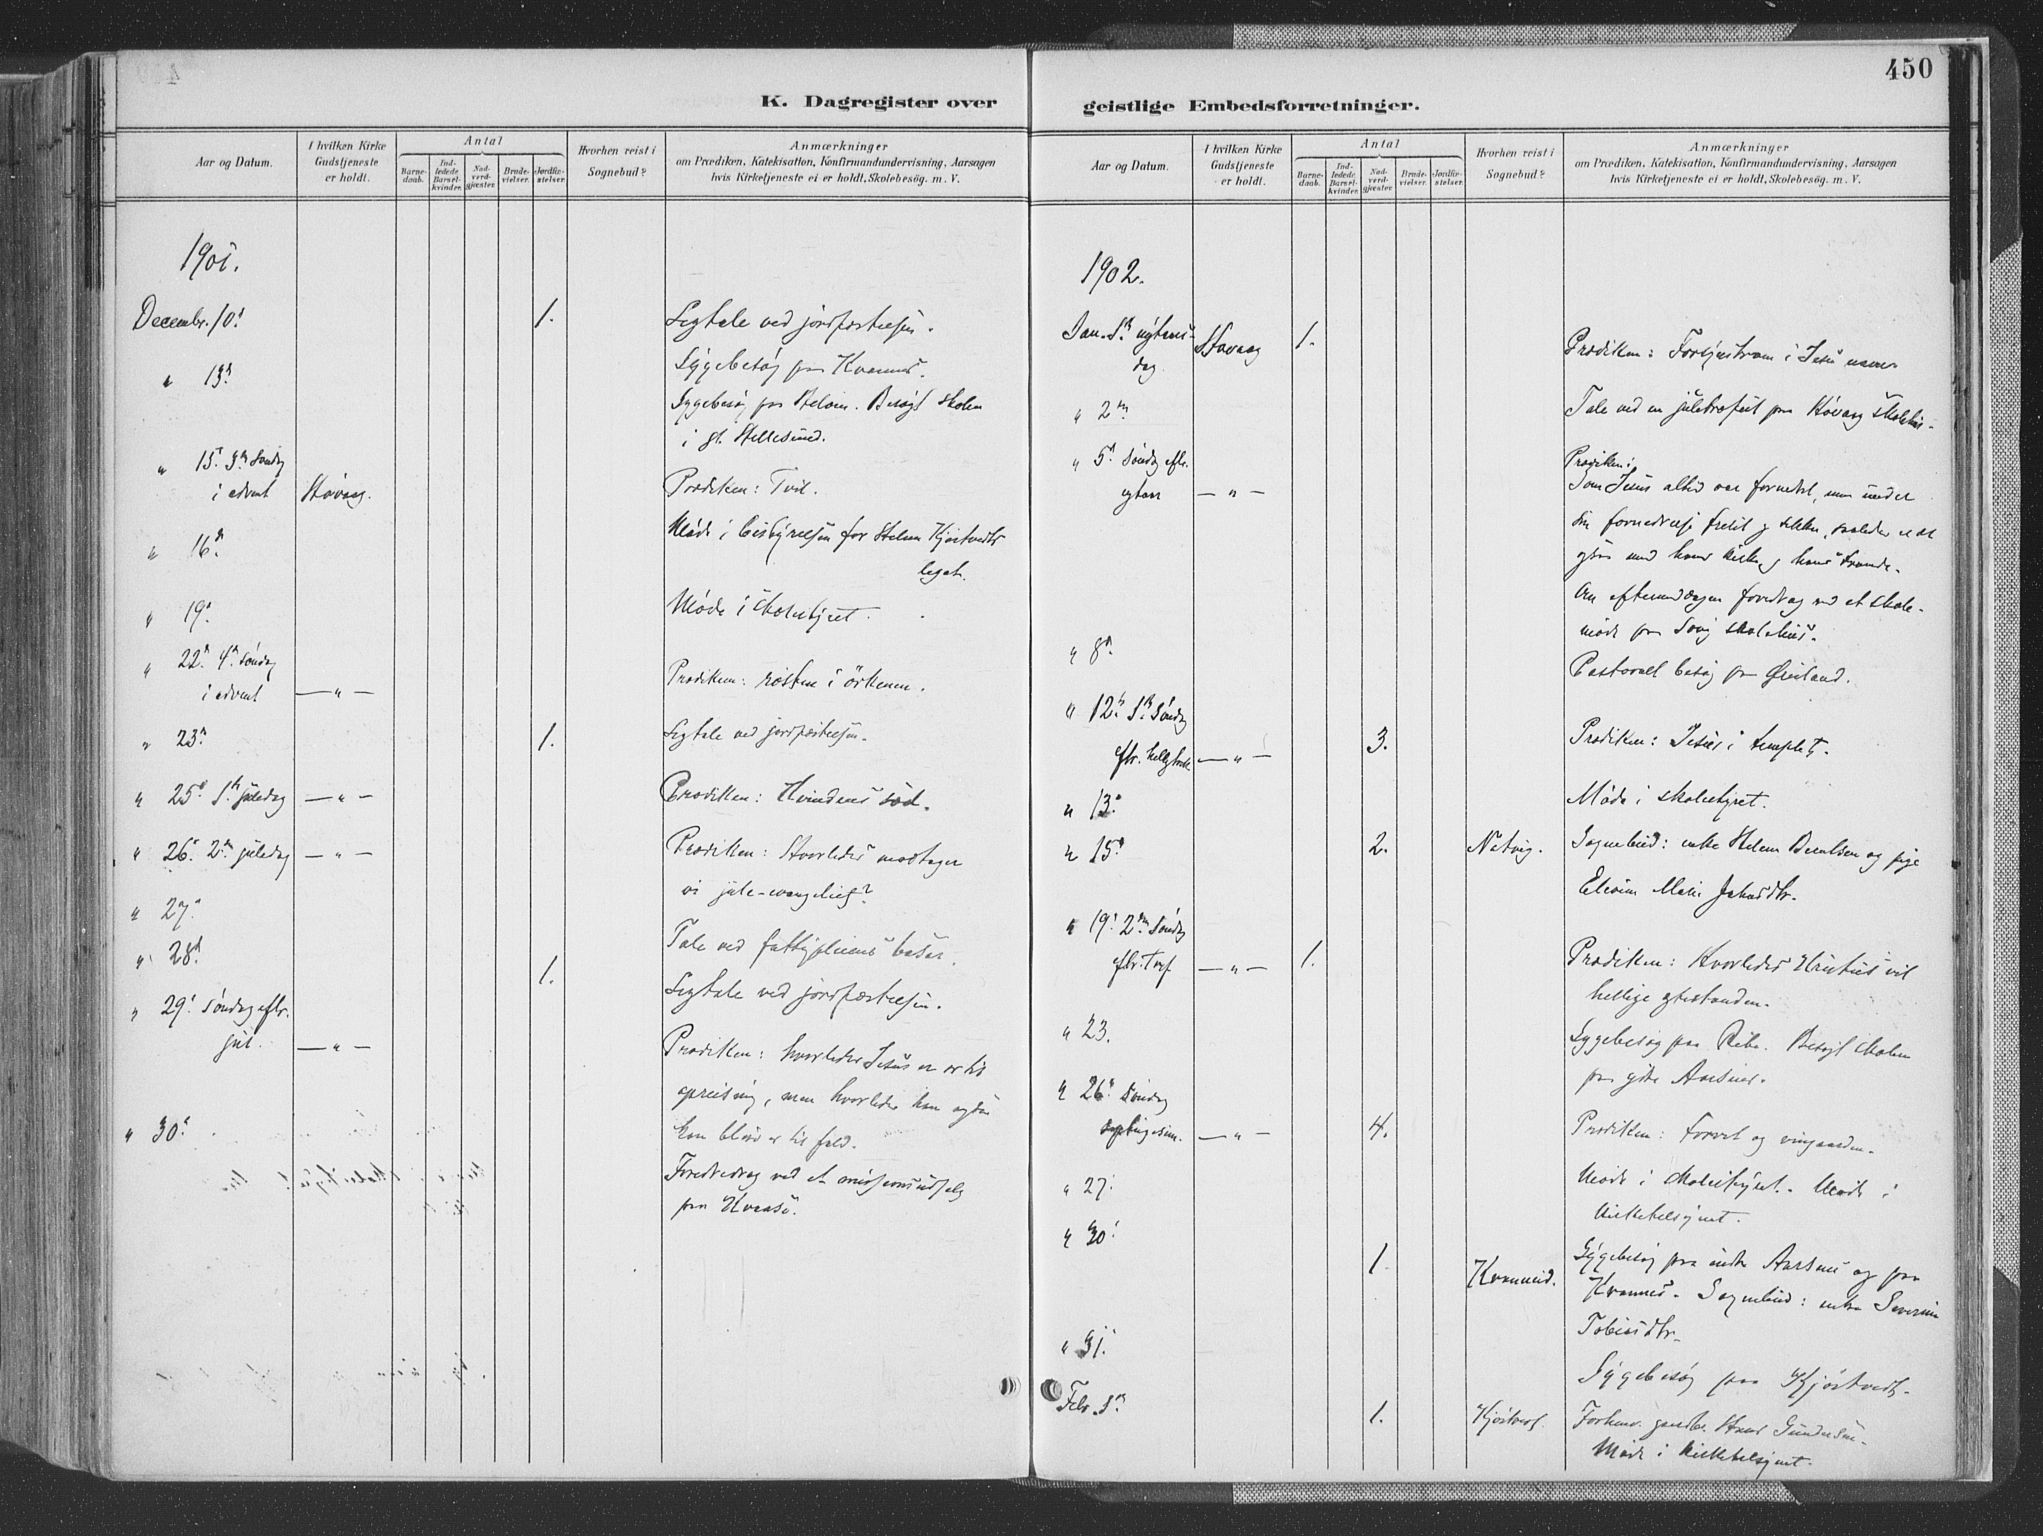 450
K. Dagregister over
Aar og Datum.
I hvilken Kirke
Gudstjeneste
er holdt.
Antal
Barne-
daab.
Ind-
ledede
Barsel-
kvinder.
Nad-
verd-
gjæster
Brude-
vielser.
Jordfæ-
stelser.
Hvorhen reist i
Sognebud?
Anmærkninger
om Prædiken, Katekisation, Konfirmandundervisning, Aarsagen
hvis Kirketjeneste ei er holdt, Skolebesøg. m. V.
1901.
Decembr. 10.
1.
Ligtale ved jordfæstelsen.
" 13.
Sygebesøg paa Kramnes.
Sygebesøg paa Besøgt skolen
i gl. Hellesund.
" 15. 3. søndag
i advent
Høvaag.
Prædiken: Tvil.
" 16.
Møde i bestyrelsen for Helene Kjøstvedts
legat.
" 19.
Møde i skolestyret.
" 22. 4. søndag
i advent
— " —
Prædiken: røsten i ørkenen.
" 23.
1.
Ligtale ved jordfæstelsen.
" 25. 1. juledag
— " —
Prædiken: Kvindens sæd.
" 26. 2. juledag
— " —
Prædiken: Hvorledes modtager
vi jule-evangeliet?
" 27.
Tale ved fattigpleiens basar.
" 28.
1.
Ligtale ved jordfæstelsen.
" 29. søndag eftr.
jul.
— " —
Prædiken: hvorledes Jesus er os til
opreisning, men hvorledes han ogsaa
kan blive os til fald.
" 30.
Foredrag ved et
paa Kvaase.
geistlige Embedsforretninger.
Aar og Datum.
I hvilken Kirke
Gudstjeneste
er holdt.
Antal
Barne-
daab.
Ind-
ledede
Barsel-
kvinder.
Nad-
verd-
gjæster
Brude-
vielser.
Jordfæ-
stelser.
Hvorhen reist i
Sognebud?
Anmærkninger
om Prædiken, Katekisation, Konfirmandundervisning, Aarsagen
hvis Kirketjeneste ei er holdt, Skolebesøg. m. V.
1902.
Jan. 1. nytaars-
dag.
Høvaag
1.
Prædiken: i Jesu navn
" 2.
Tale ved en juletræfest paa Høvaag skolehus.
" 5. søndag eftr.
nytaar
— " —
Prædiken:
Som Jesus altid var fornedret, men under
sin fornedrelse frelst og sikker, saaledes er det
ogsaa med hans kirke og hans
Om eftermiddagen foredrag ved et skole-
møde paa skolehus.
" 8.
Pastoralt besøg paa Øinland.
" 12. 1. søndag
eftr. helligtrek
— " —
3.
Prædiken: Jesus i templet.
" 13.
Møde i skolestyret.
" 15.
2.
Natvig.
Sognebud: enke Helene Berntsen og pige
Marie Jakobsdtr.
" 19. 2. søndag
— " —
1.
Prædiken: Hvorledes Kristus vil
hellige egtestanden.
" 23.
Sygebesøg paa Ribe. Besøgt skolen
paa ytre Aarsnes.
" 26. søndag
septuagesim.
— " —
4.
Prædiken: Torvet og vingaarden.
" 27.
Møde i skolestyret. Møde i
kirketilsynet.
" 30.
1
Sygebesøg paa indre Aarsnes og paa
Kramnes. Sognebud: enke Severine
Tobiasdtr.
" 31.
Sygebesøg paa Kjøstvedt.
Febr. 1.
1.
Kjøstvedt.
Forhenv. gaardbr. Hans Gundersen.
Møde i kirketilsynet.